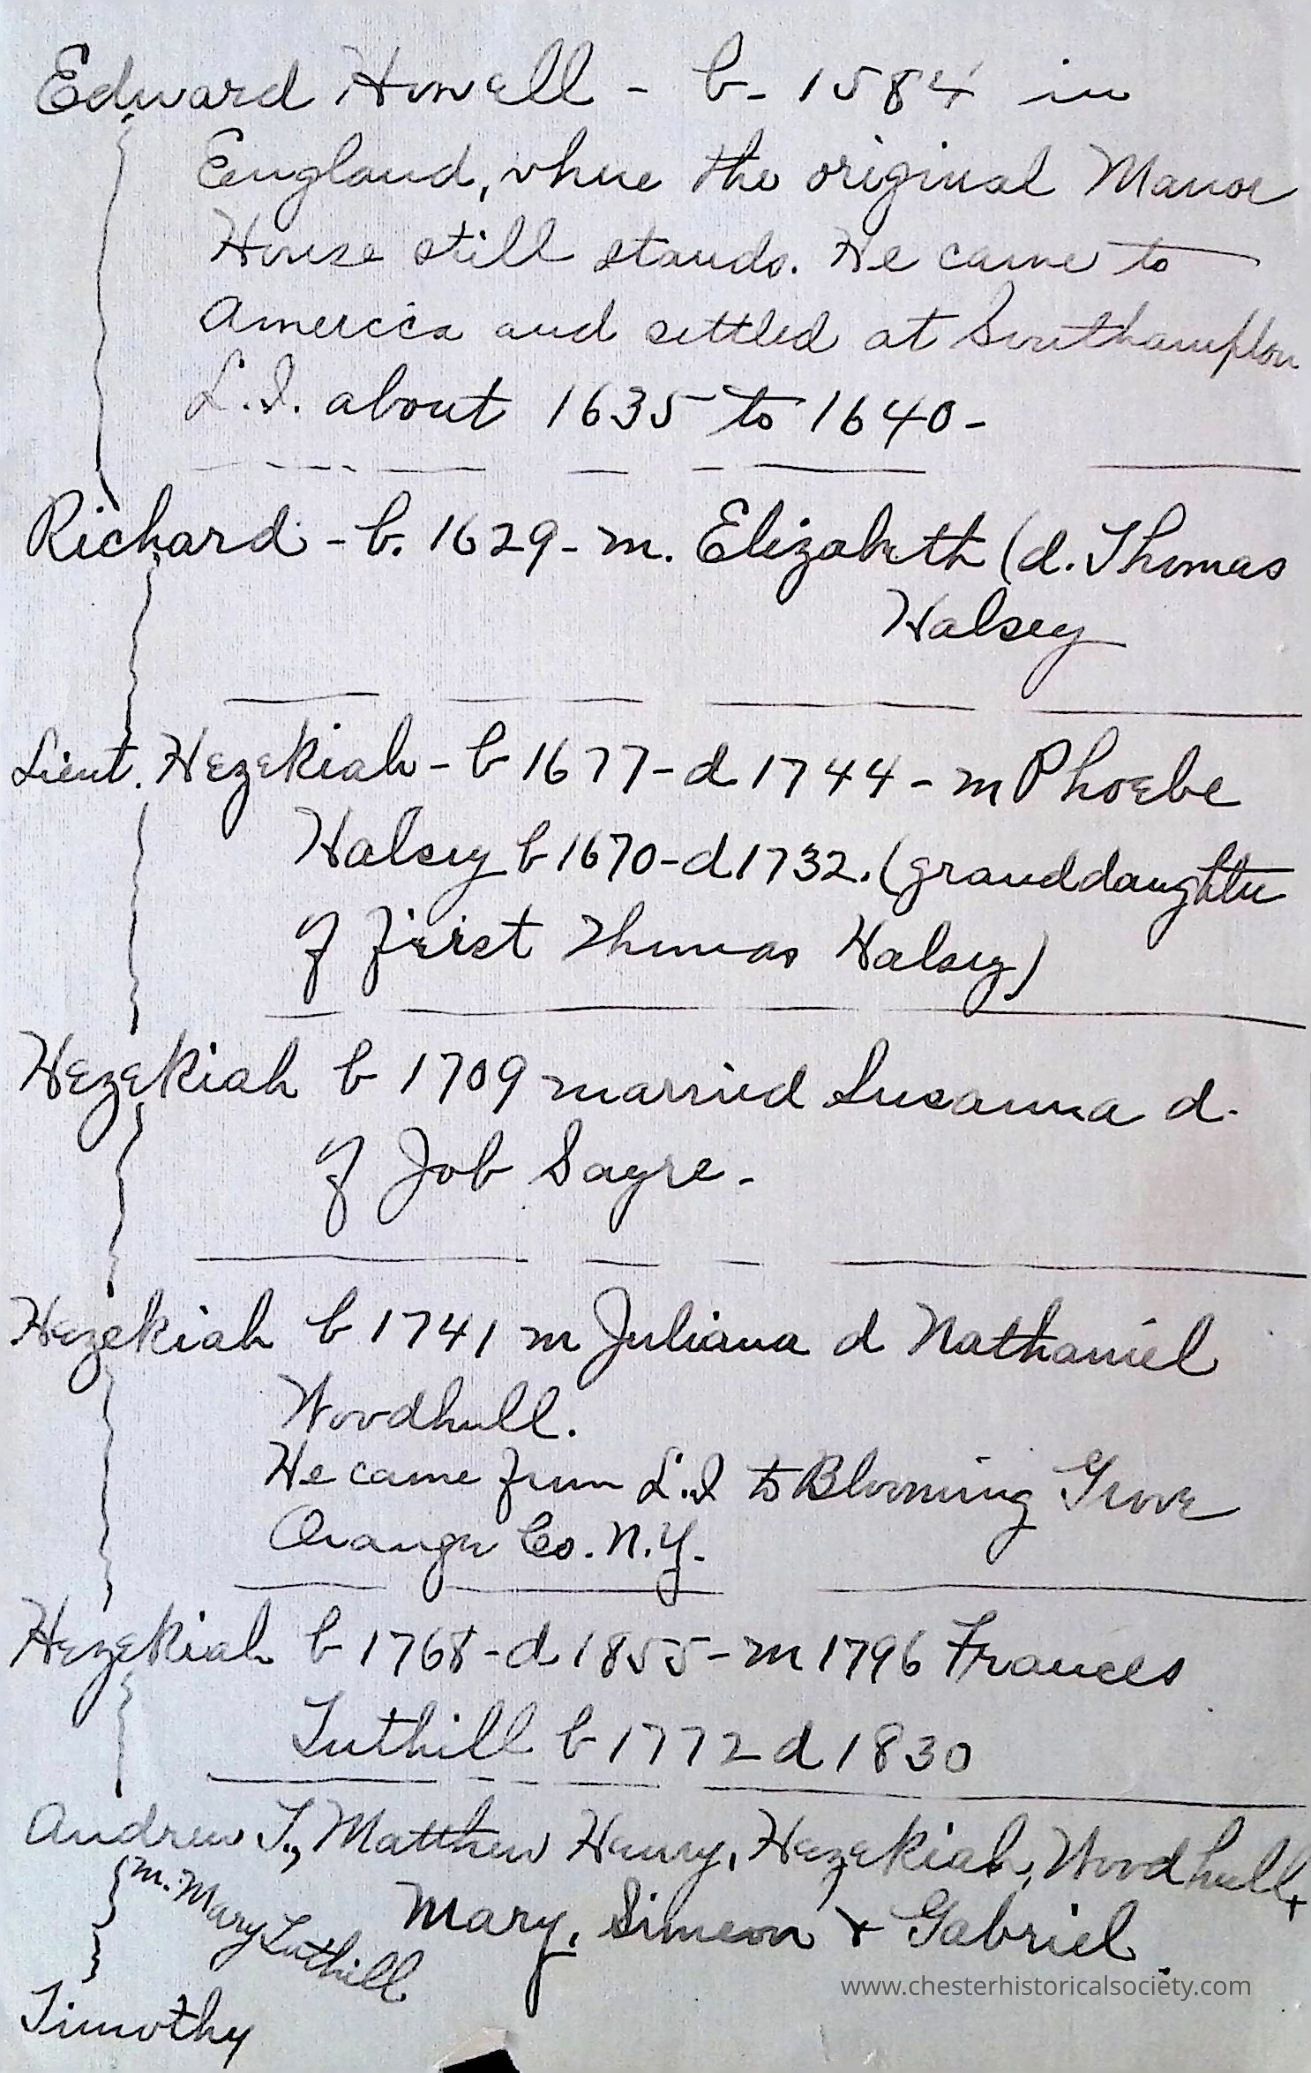 Edward Howell - b. 1584 in
England, where the original Manor
House still stands. He came to
America and settled at Southampton
L.I. about 1635 to 1640-
Richard - b. 1629 - m. Elizabeth (d. Thomas
Halsey
Lieut. Hezekiah - b 1677 - d 1744 - m Phoebe
Halsey b 1670 - d 1732. (granddaughter
of first Thomas Halsey)
Hezekiah b 1709 married Susanna d.
of Job Sayre.
Hezekiah b 1741 m Juliana d Nathaniel
Woodhull.
He came from L.I to Blooming Grove
Orange Co. N.Y.
Hezekiah b 1768 - d 1855 - m 1796 Frances
Tuthill b 1772 d 1830
Andrew T., Matthew Henry, Hezekiah, Woodhull +
m. Mary Tuthill
Mary, Simeon + Gabriel
Timothy
www.chesterhistoricalsociety.com